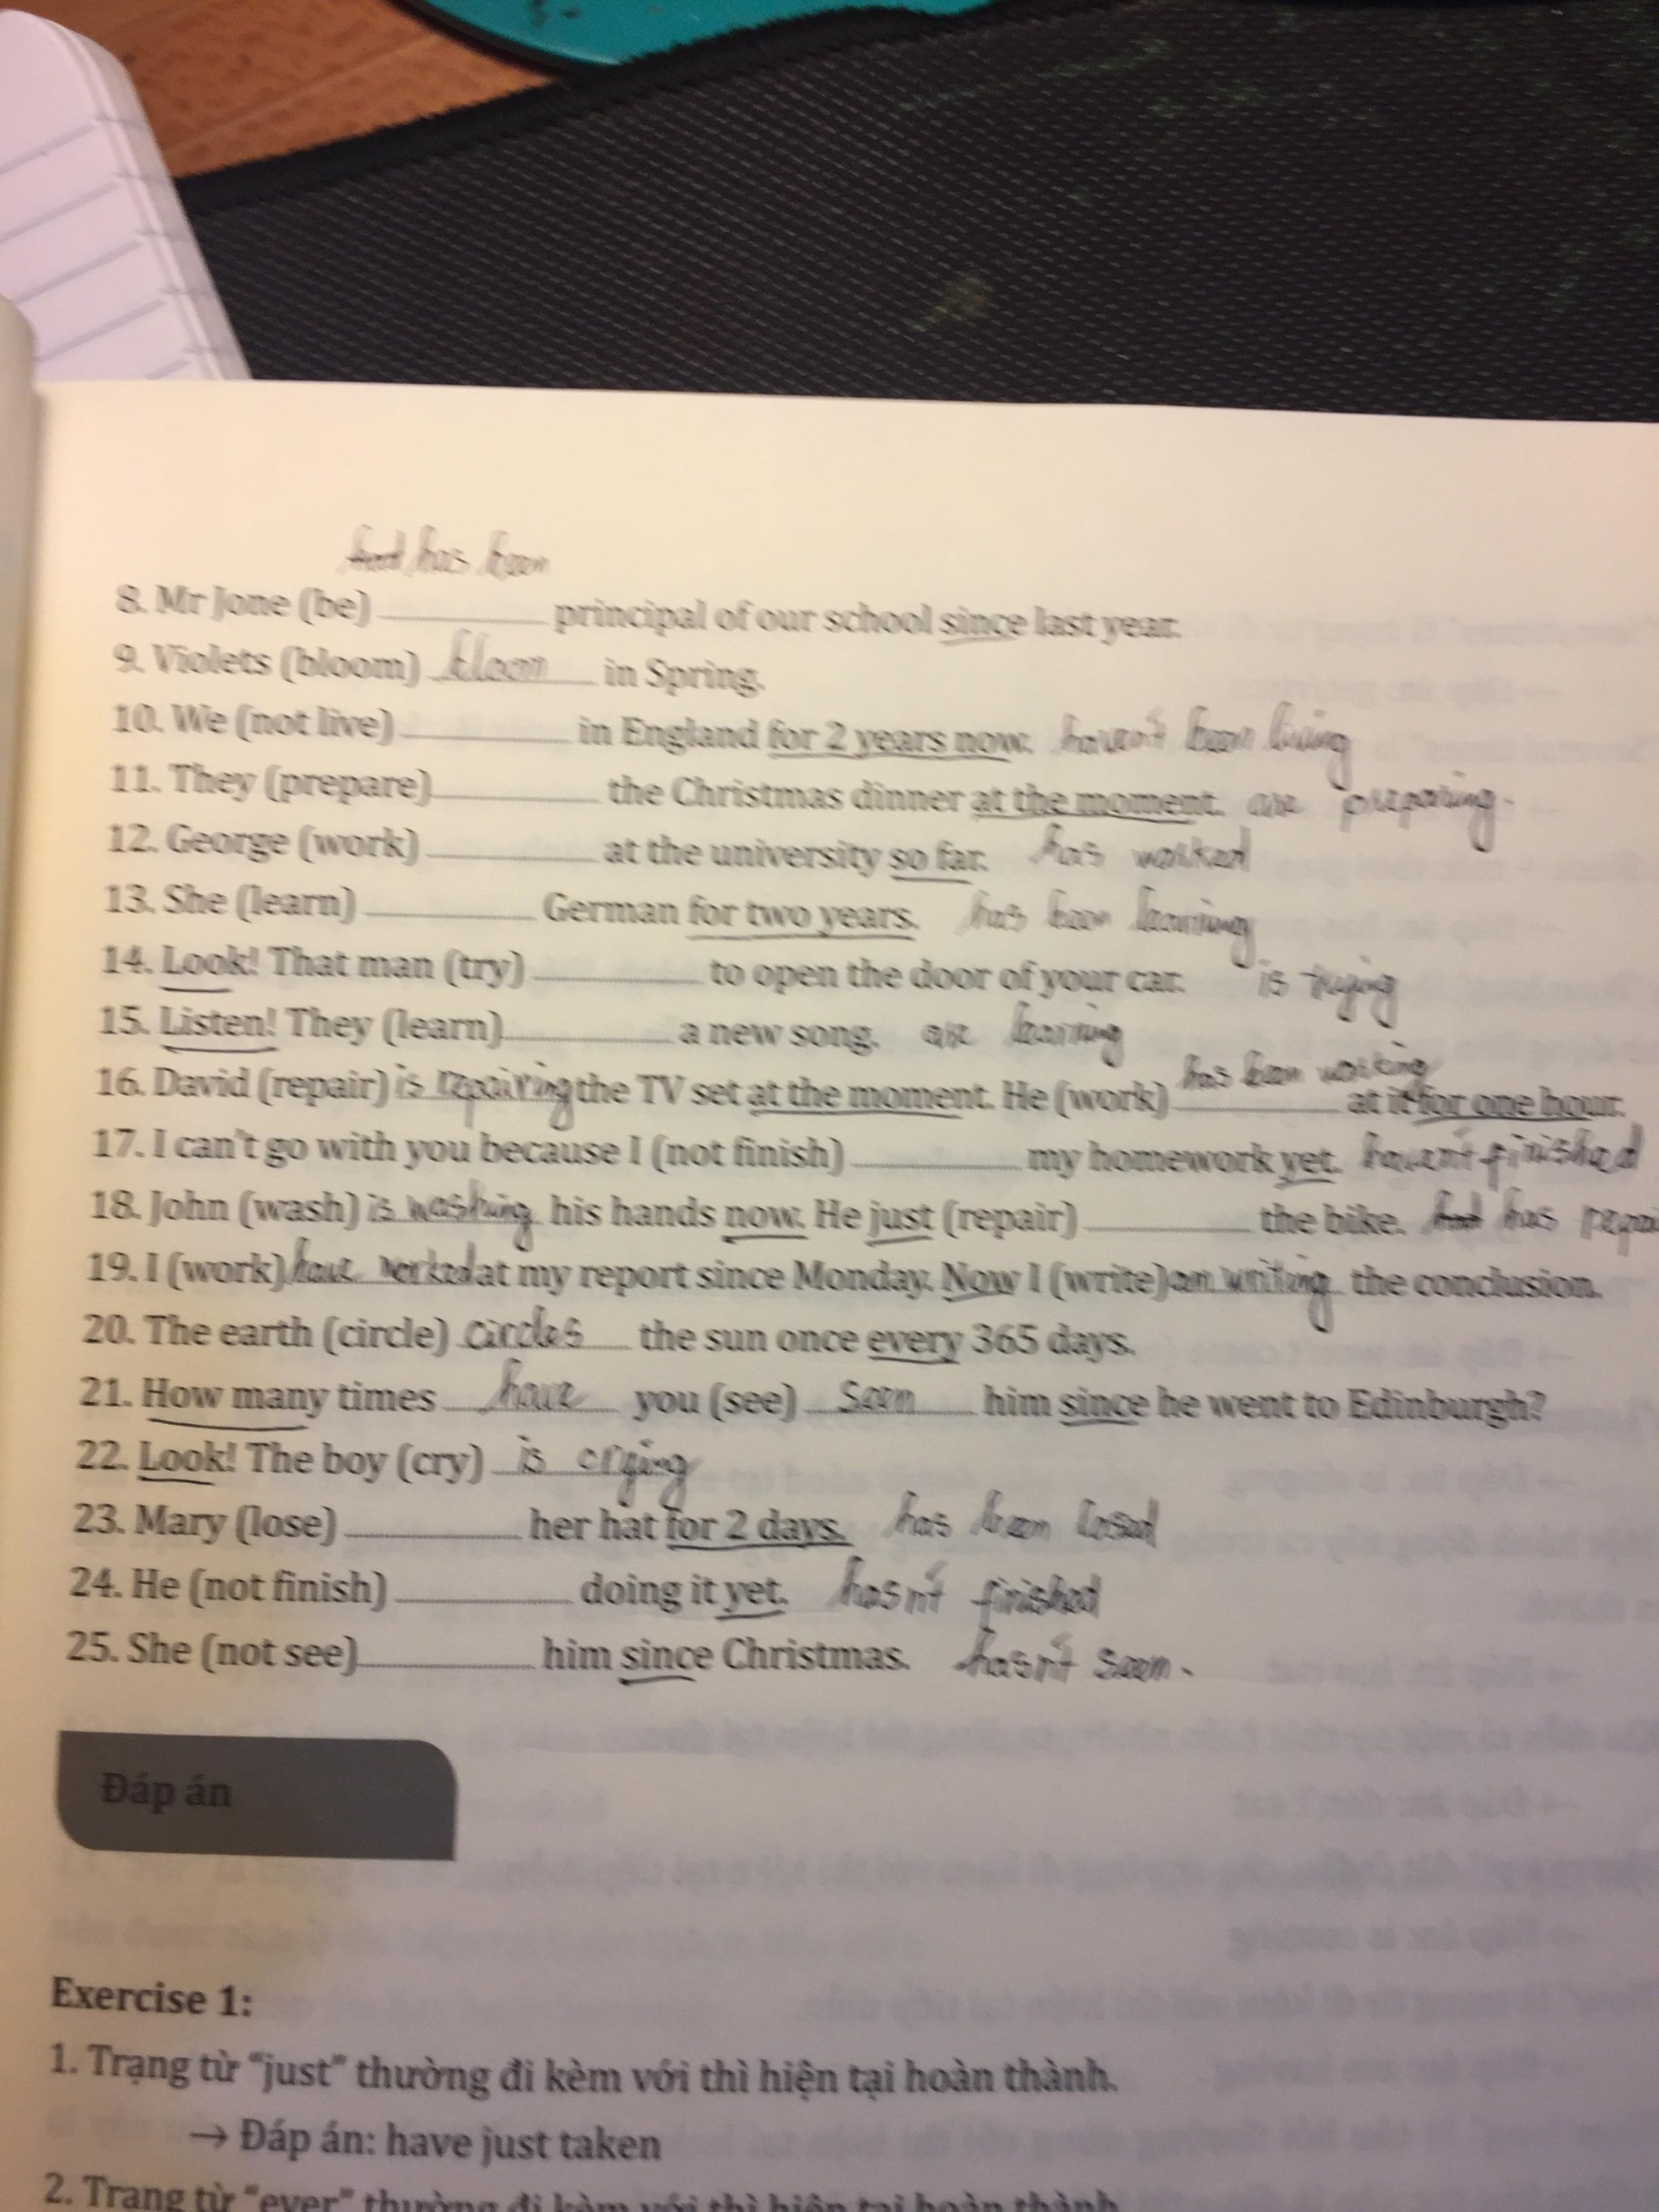 had has been
8. Mr Jone (be) ............ principal of our school since last year.
9. Violets (bloom) bloom in Spring.
10. We (not live) ............ in England for 2 years now. haven't been living
11. They (prepare) ............ the Christmas dinner at the moment. are preparing.
12. George (work) ............ at the university so far. has worked
13. She (learn) ............ German for two years. has been learning
14. Look! That man (try) ............ to open the door of your car. is trying
15. Listen! They (learn) ............ a new song. are learning
has been working
16. David (repair) is repairing the TV set at the moment. He (work) ............ at it for one hour.
17. I can't go with you because I (not finish) ............ my homework yet. haven't finished
18. John (wash) is washing his hands now. He just (repair) ............ the bike. had has repai
19. I (work) have worked at my report since Monday. Now I (write) am writing the conclusion.
20. The earth (circle) circles the sun once every 365 days.
21. How many times have you (see) seen him since he went to Edinburgh?
22. Look! The boy (cry) is crying
23. Mary (lose) ............ her hat for 2 days. has been losed
24. He (not finish) ............ doing it yet. hasn't finished
25. She (not see) ............ him since Christmas. hasn't seen.
Đáp án
Exercise 1:
1. Trạng từ “just” thường đi kèm với thì hiện tại hoàn thành.
→ Đáp án: have just taken
2. Trạng từ “ever” thường đi kèm với thì hiện tại hoàn thành